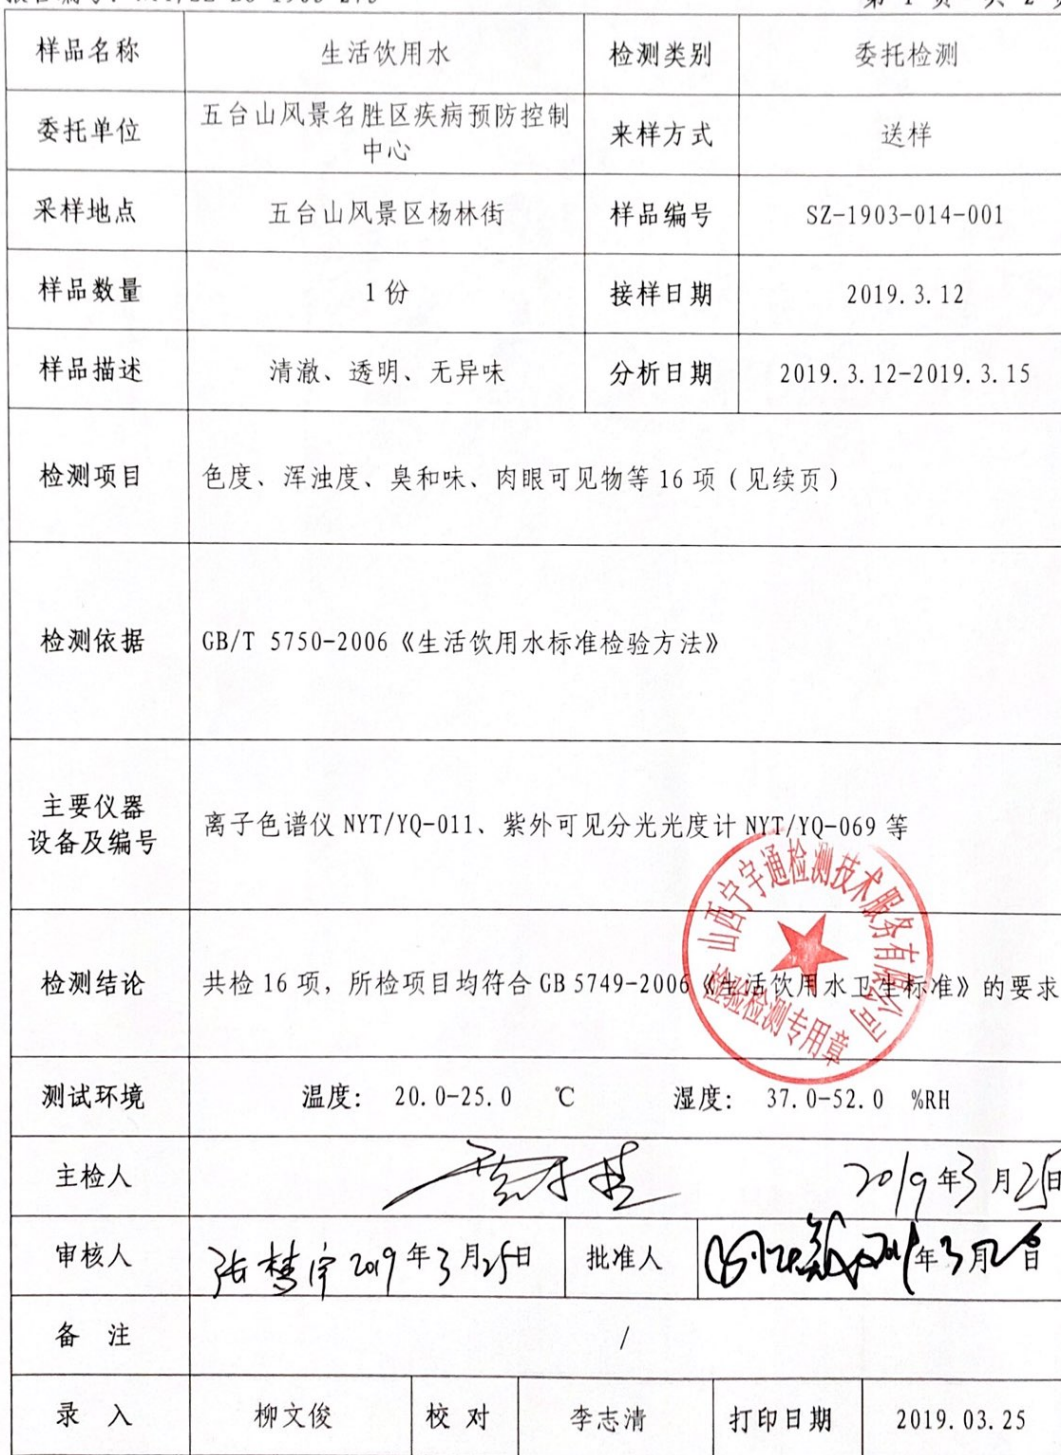 第 1 页 共 2 页
样品名称 生活饮用水 检测类别 委托检测
委托单位 五台山风景名胜区疾病预防控制
中心 来样方式 送样
采样地点 五台山风景区杨林街 样品编号 SZ-1903-014-001
样品数量 1份 接样日期 2019.3.12
样品描述 清澈、透明、无异味 分析日期 2019.3.12-2019.3.15
检测项目 色度、浑浊度、臭和味、肉眼可见物等16项(见续页)
检测依据 GB/T 5750-2006《生活饮用水标准检验方法》
主要仪器
设备及编号 离子色谱仪 NYT/YQ-011、紫外可见分光光度计 NYT/YQ-069 等
山西宁宇通检测技术服务有限公司
检测结论 共检16项，所检项目均符合 GB 5749-2006《生活饮用水卫生标准》的要求
检验检测专用章
测试环境 温度: 20.0-25.0 ℃ 湿度: 37.0-52.0 %RH
主检人 2019年3月25日
审核人 张梦宇 2019年3月25日 批准人 2019年3月26日
备 注 /
录 入 柳文俊 校 对 李志清 打印日期 2019.03.25